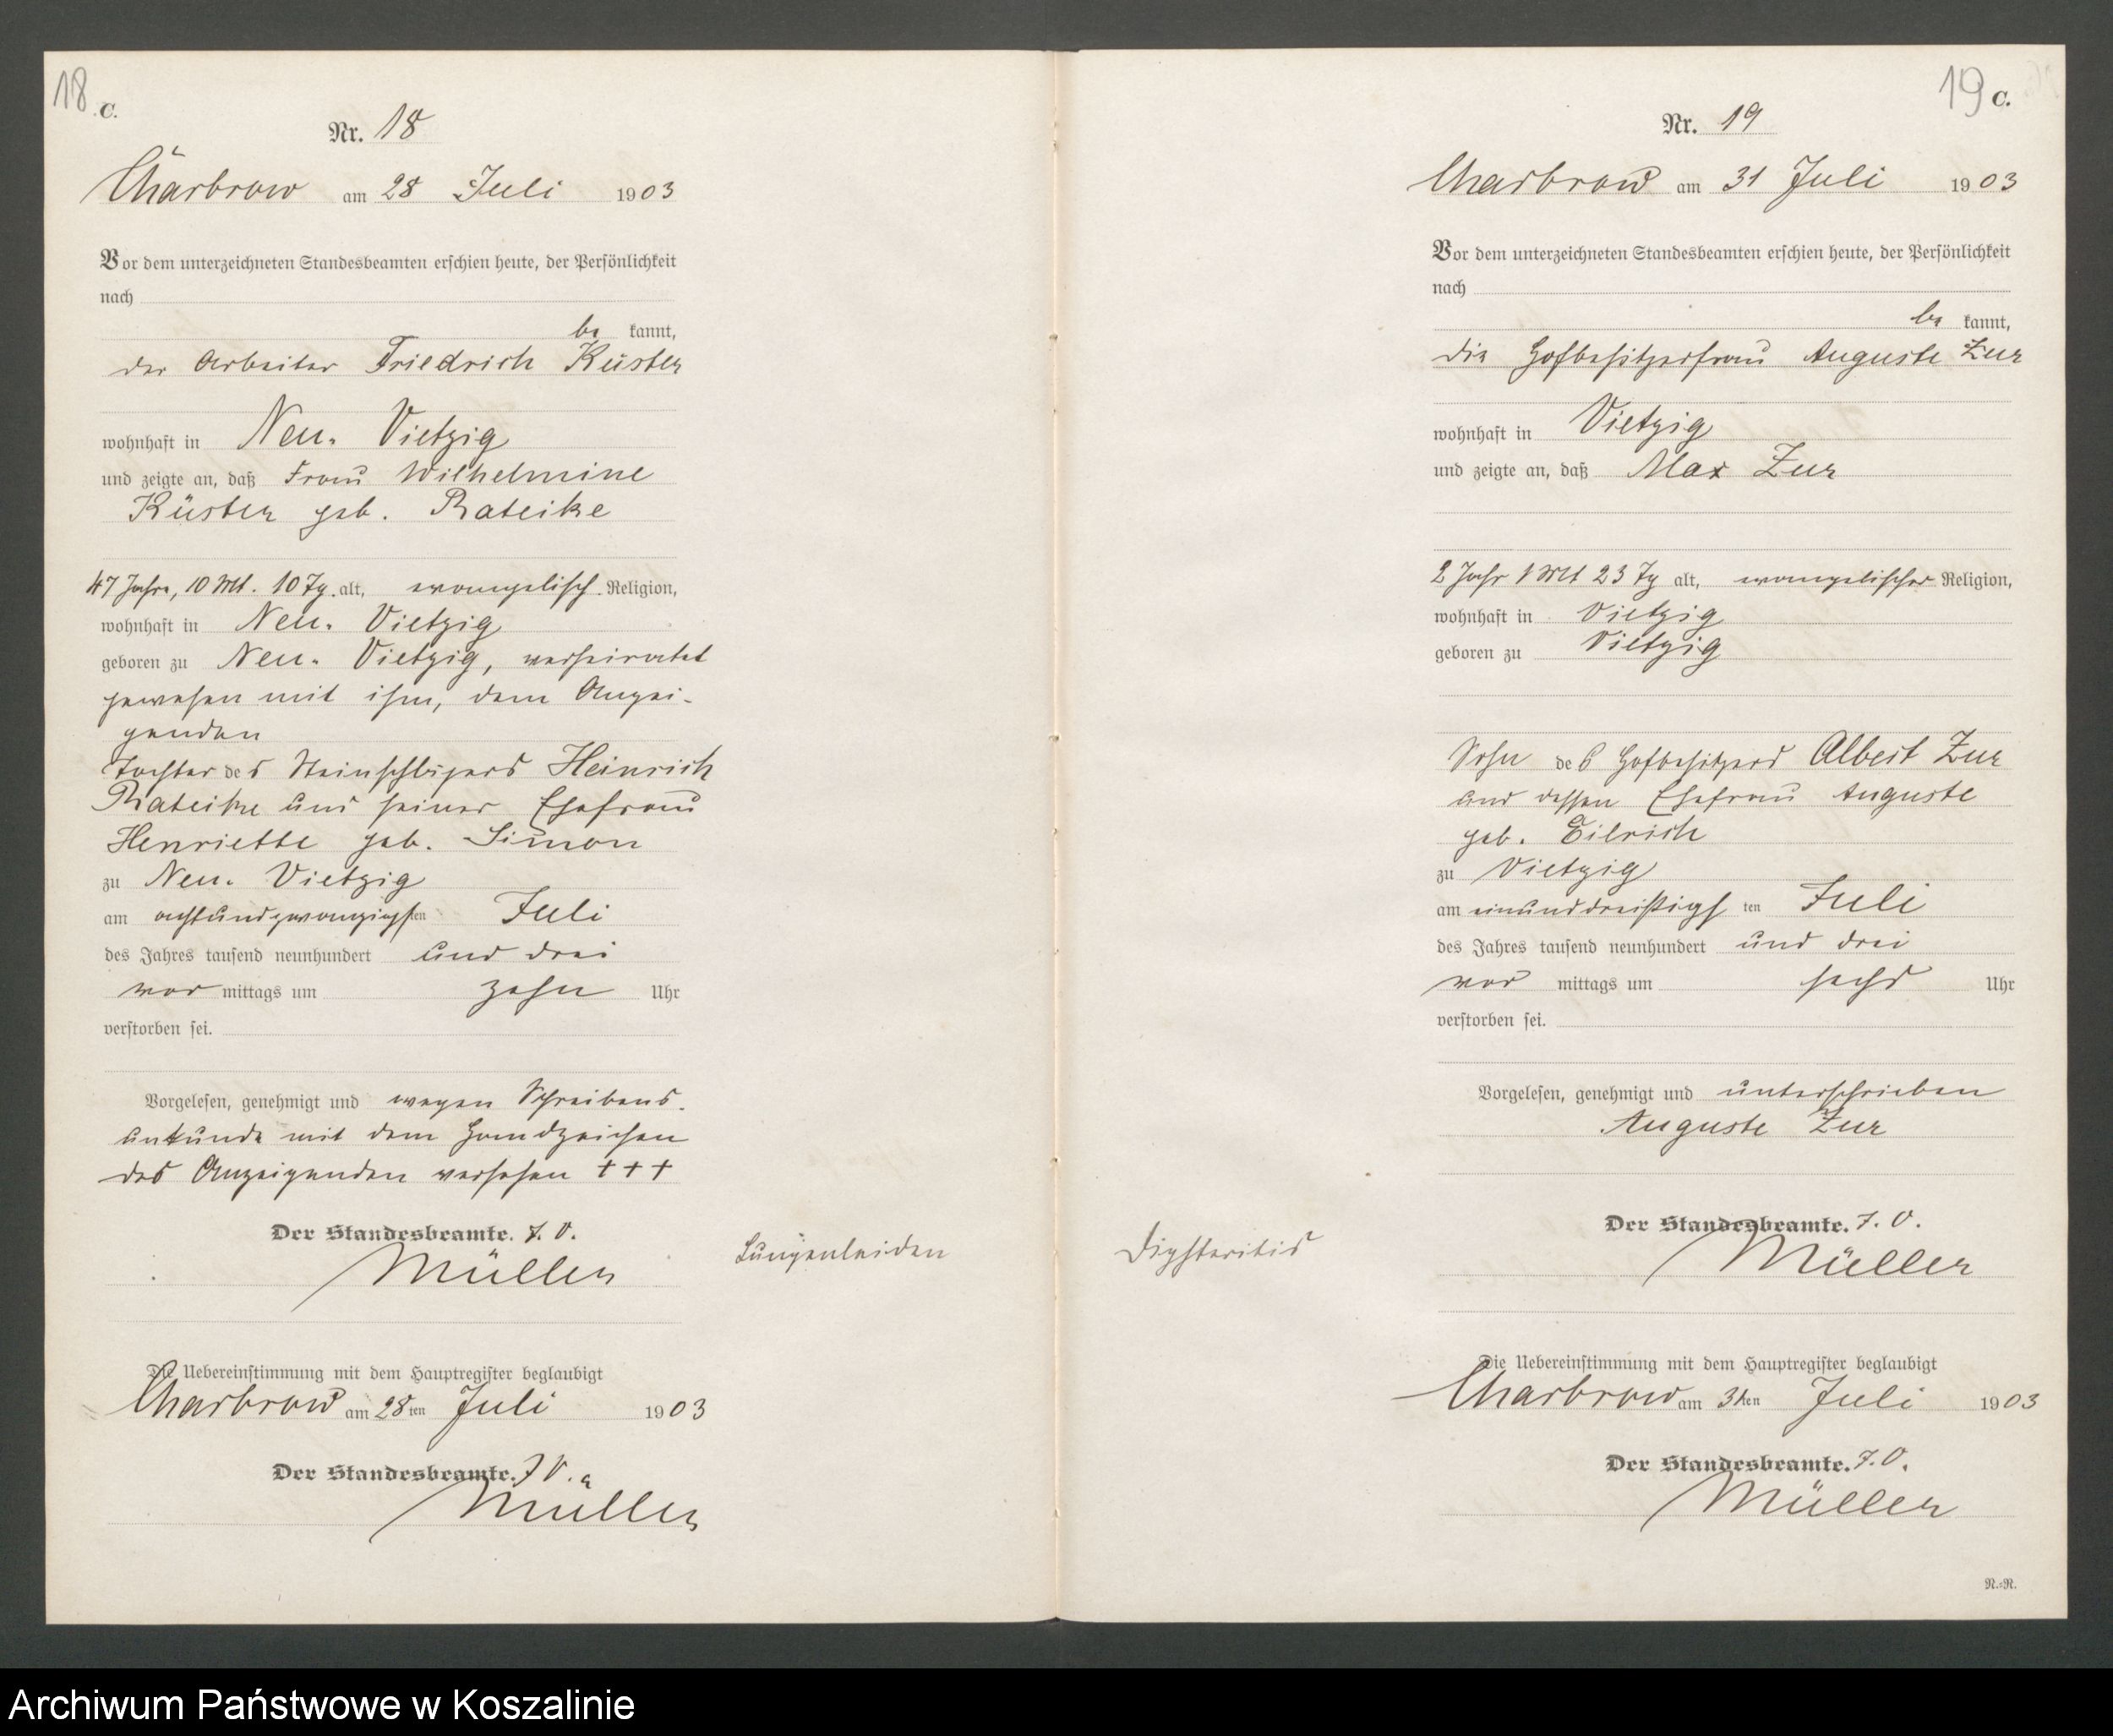 18
C.
Nr. 18
Charbrow am 28 Juli 1903
Vor dem unterzeichneten Standesbeamten erschien heute, der Persönlichkeit
nach
be kannt,
der Arbeiter Friedrich Küster
wohnhaft in Neu-Vietzig
und zeigte an, daß Frau Wilhelmine
Küster geb. Rateike
47 Jahre, 10 Mt. 10 Tg. alt, evangelisch. Religion,
wohnhaft in Neu-Vietzig
geboren zu Neu-Vietzig, verheiratet
gewesen mit ihm, dem Anzei-
genden
Tochter des Steinschlägers Heinrich
Rateike und seiner Ehefrau
Henriette geb. Simon
zu Neu-Vietzig
am achtundzwanzigsten Juli
des Jahres tausend neunhundert und drei
vor mittags um zehn Uhr
verstorben sei.
Vorgelesen, genehmigt und wegen Schreibens-
unkunde mit dem Handzeichen
des Anzeigenden versehen +++
Der Standesbeamte. J. V.
Müller
Lungenleiden
Die Uebereinstimmung mit dem Hauptregister beglaubigt
Charbrow am 28ten Juli 1903
Der Standesbeamte. J V.
Müller
19
C.
Nr. 19
Charbrow am 31 Juli 1903
Vor dem unterzeichneten Standesbeamten erschien heute, der Persönlichkeit
nach
be kannt,
die Hofbesitzerfrau Auguste Zur
wohnhaft in Vietzig
und zeigte an, daß Max Zur
2 Jahr 1 Mt 23 Tg alt, evangelischer Religion,
wohnhaft in Vietzig
geboren zu Vietzig
Sohn des Hofbesitzers Albert Zur
und dessen Ehefrau Auguste
geb. Eilrich
zu Vietzig
am einunddreißigsten Juli
des Jahres tausend neunhundert und drei
vor mittags um sechs Uhr
verstorben sei.
Vorgelesen, genehmigt und unterschrieben
Auguste Zur
Der Standesbeamte. J. V.
Müller
Diphteritis
Die Uebereinstimmung mit dem Hauptregister beglaubigt
Charbrow am 31ten Juli 1903
Der Standesbeamte. J. V.
Müller
N.=N.
Archiwum Państwowe w Koszalinie